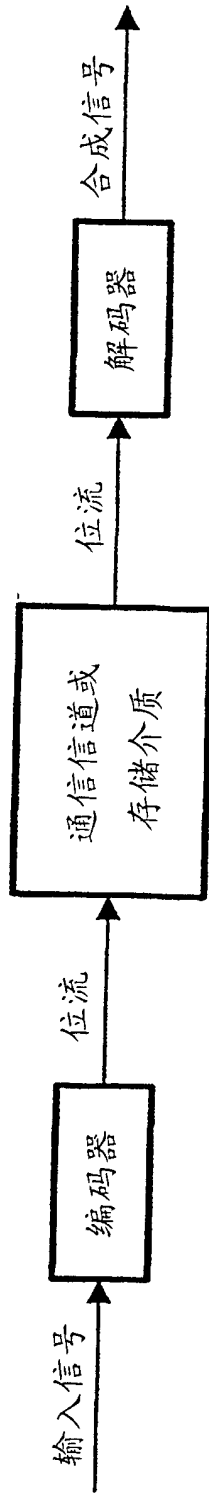 输入信号
编码器
位流
通信信道或
存储介质
位流
解码器
合成信号